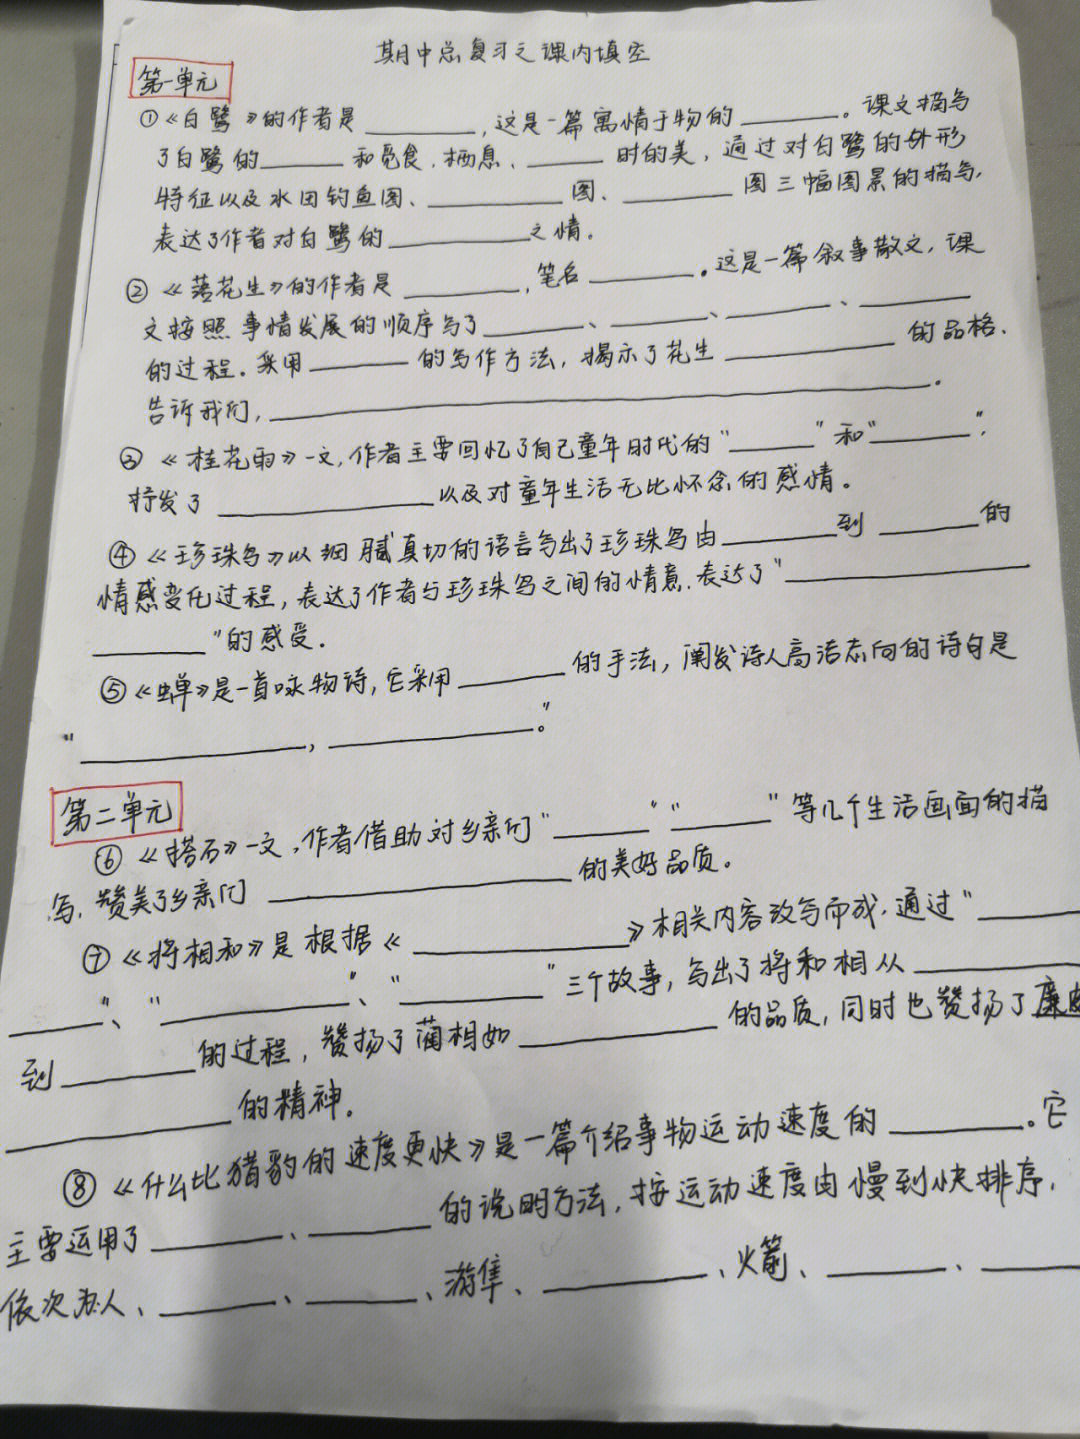 期中总复习之课内填空
第一单元
①《白鹭》的作者是________,这是一篇寓情于物的________。课文描写
了白鹭的________和觅食、栖息、________时的美，通过对白鹭的外形
特征以及水田钓鱼图、________图、________图三幅图景的描写,
表达了作者对白鹭的________之情。
②《落花生》的作者是________,笔名________。这是一篇叙事散文,课
文按照事情发展的顺序写了________、________、________、________
的过程。采用________的写作方法,揭示了花生________的品格,
告诉我们,________________。
③《桂花雨》一文,作者主要回忆了自己童年时代的"________"和"________",
抒发了________以及对童年生活无比怀念的感情。
④《珍珠鸟》以细腻真切的语言写出了珍珠鸟由________到________的
情感变化过程,表达了作者与珍珠鸟之间的情意,表达了"________
________"的感受。
⑤《蝉》是一首咏物诗,它采用________的手法,阐发诗人高洁志向的诗句是
"________,________。"
第二单元
⑥《搭石》一文,作者借助对乡亲们"________""________"等几个生活画面的描
写,赞美了乡亲们________的美好品质。
⑦《将相和》是根据《________》相关内容改写而成,通过"________
________"、"________"、"________"三个故事,写出了将和相从________
到________的过程,赞扬了蔺相如________的品质,同时也赞扬了廉
________的精神。
⑧《什么比猎豹的速度更快》是一篇介绍事物运动速度的________。它
主要运用了________、________的说明方法,按运动速度由慢到快排序,
依次为人、________、________、游隼、________、火箭、________、________